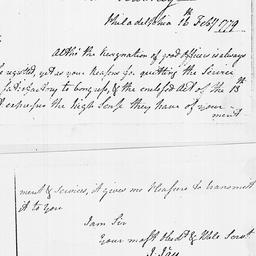 Philadelphia 16th Feby 1779
Altho' the Resignation of good Officers is always
regretted, yet as your Reasons for quitting the Service
satisfactory to Congress, & the enclosed Act of the 13th
expresses the high Sense they have of your
merit
merit & Services, it gives me Pleasure to transmit
it to you
I am Sir
your most Obedt & Hble Servt
J. Jay